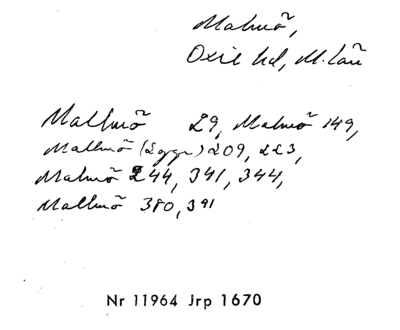 Malmö,
Oxie hd, M.län
Mallmö 29, Malmö 149,
Mallmö (Lygg) 209, 223,
Malmö 244, 341, 344,
Mallmö 380, 391
Nr 11964 Jrp 1670